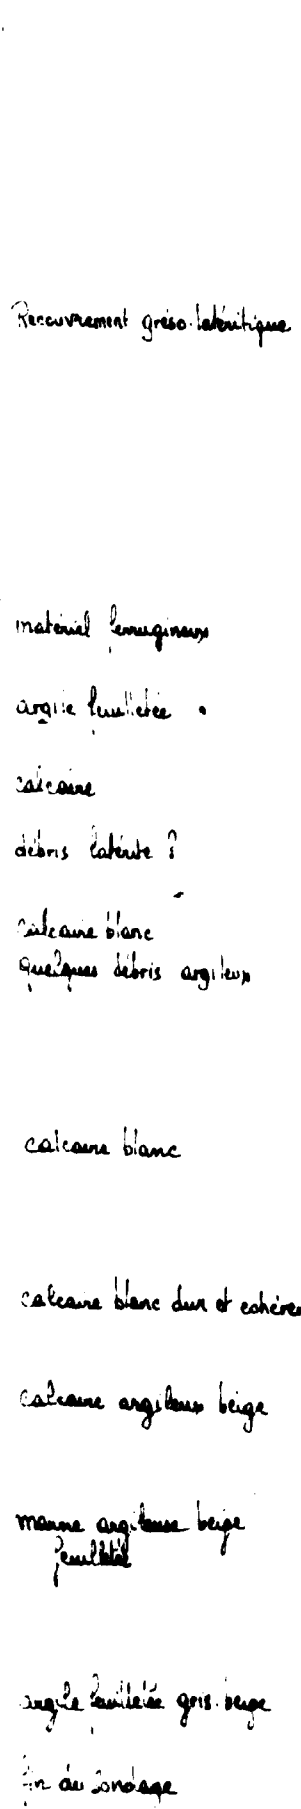 Recouvrement gréso-latéritique
matériel ferrugineux
argile feuilletée
calcaire
débris latérite ?
calcaire blanc
quelques débris argileux
calcaire blanc
calcaire blanc dur et cohéren
calcaire argileux beige
marne argileuse beige
feuilletée
argile feuilletée gris-beige
fin du sondage